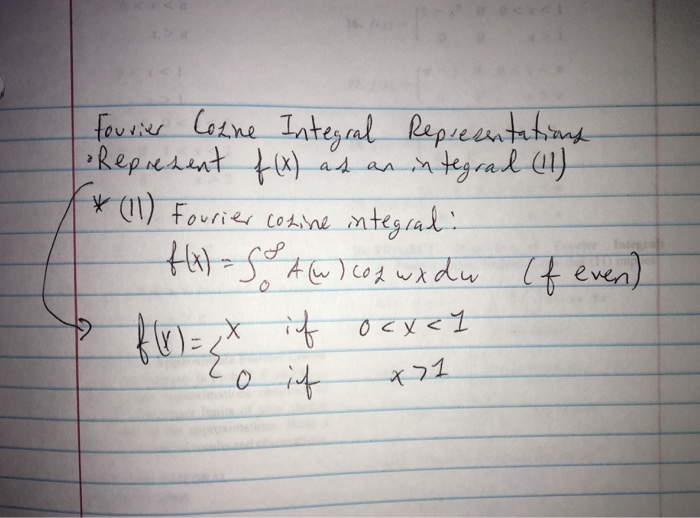 Fourier Cosine Integral Representations
• Represent f(x) as an integral (11)
* (11) Fourier cosine integral:
f(x) = ∫₀^∞ A(w) cos wx dw (f even)
f(x) = { x if 0 < x < 1
0 if x > 1